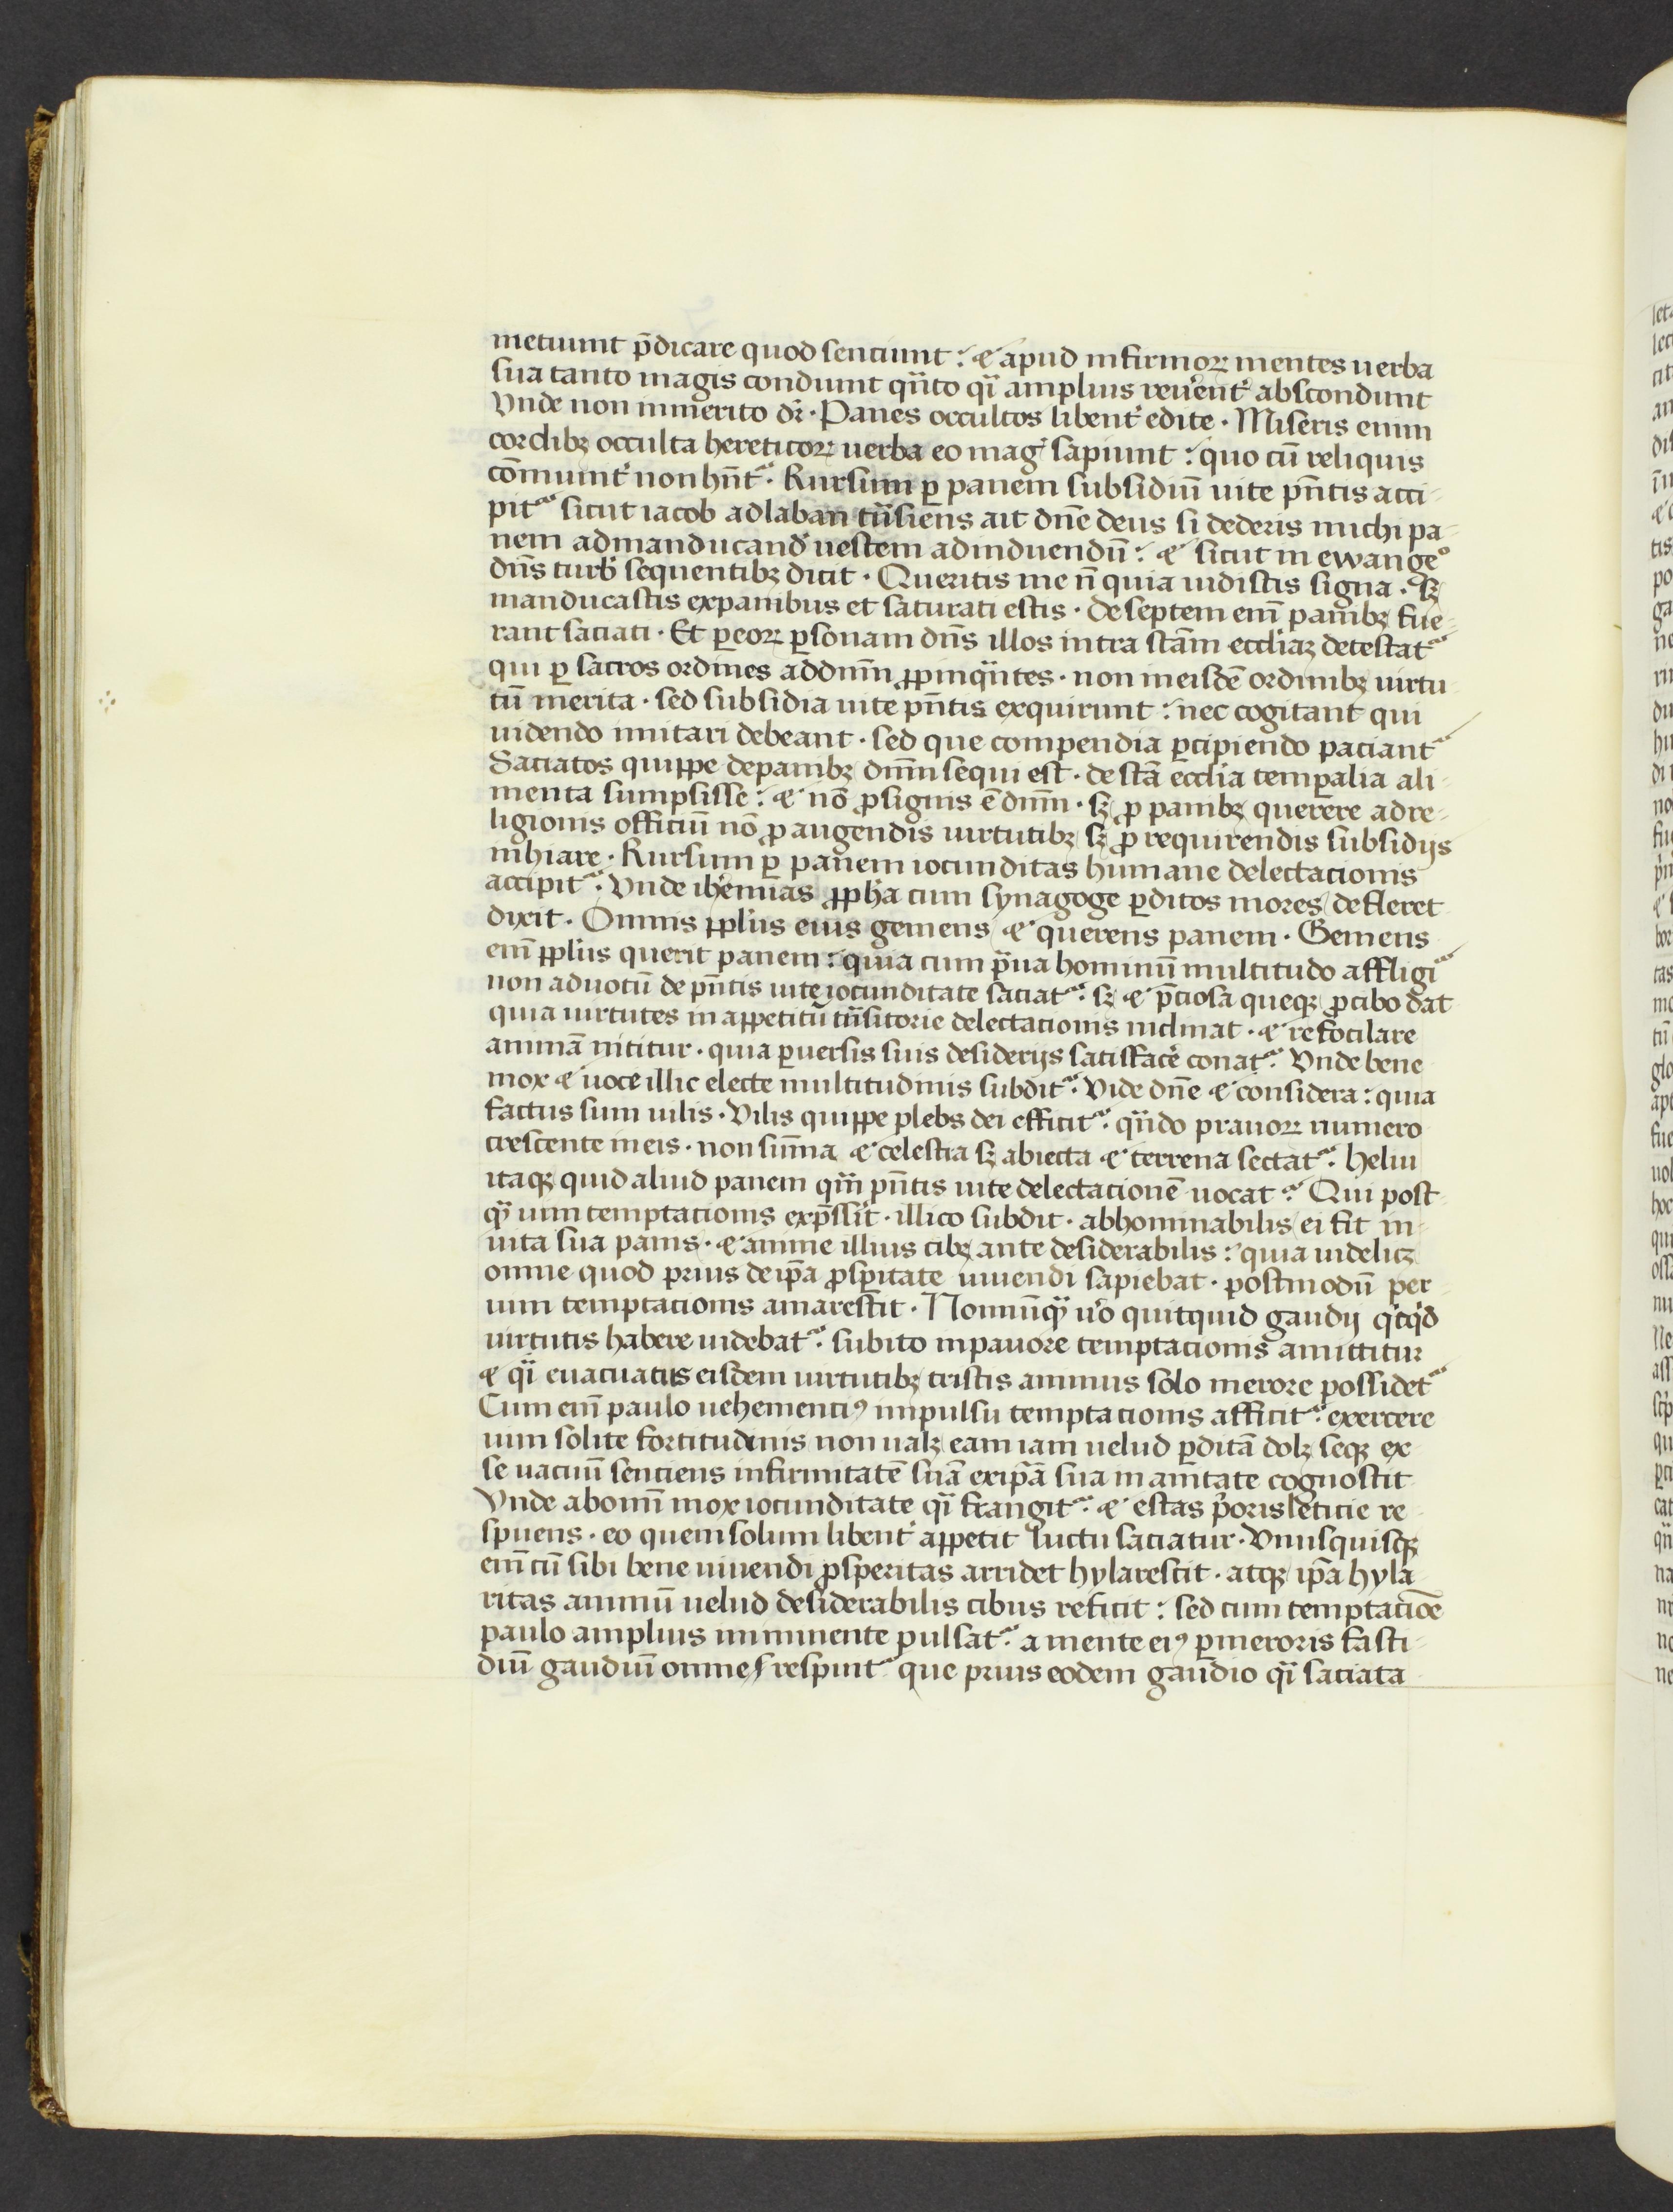 metiunt p̄dicare quod sentiunt : ⁊ apud infirmoꝝ mentes uerba
sua tanto magis condiunt qͣnto qͣi amplius reuerent̓ abscondunt
Vnde non inmerito dr̄ · Panes occultos libent̓ edite · Miseris enim
cordibꝫ occulta hereticoꝝ uerba eo mag̓ sapiunt : quo cū reliquis
cōmunit̓ non hn̄t᷑ · Rursum ꝑ panem subsidiū uite pn̄tis acci-
pit᷑ sicut iacob ad laban tͣnsiens ait dn̄e deus si dederis michi pa-
nem ad manducand̓ uestem ad induendū : ⁊ sicut in ewangeº
dn̄s turb̓ sequentibꝫ dicit · Queritis me n̄ quia uidistis signa · sꝫ
manducastis ex panibus et saturati estis · de septem em̄ panibꝫ fue-
rant saciati · Et ꝑ eoꝝ ꝑsonam dn̄s illos intra stām eccliaꝫ detestat᷑
qui ꝑ sacros ordines ad dnm̄ ꝓpinqͣntes · non in eisdē ordinibꝫ uirtu
tū merita · sed subsidia uite pn̄tis exquirunt : nec cogitant qui
uidendo imitari debeant · sed que compendia ꝑcipiendo paciant᷑
Saciatos quippe de panibꝫ dnm̄ sequi est · de stā ecclia tempalia ali-
menta sumpsisse : ⁊ nō ꝓ signis ē dnm̄ · sꝫ ꝓ panibꝫ querere ad re-
ligionis officiū nō ꝓ augendis uirtutibꝫ sꝫ ꝓ requirendis subsidijs
inhiare · Rursum ꝑ panem iocunditas humane delectacionis
accipit᷑ · Vnde iheremias ꝓpha cum synagoge ꝑditos mores defleret
dixit · Omnis ppl̓us eius gemens ⁊ querens panem · Gemens
em̄ ppl̓us querit panem : quia cum pͣua hominū multitudo affligi᷑
non ad uotū de pn̄tis uite iocunditate saciat᷑ · sꝫ ⁊ p̄ciosa queqꝫ ꝓ cibo dat
quia uirtutes in appetitū tͣnsitorie delectacionis inclinat · ⁊ refocilare
animā nititur · quia ꝑuersis suis desiderijs satisfacē conat᷑ · Vnde bene
mox ⁊ uoce illic electe multitudinis subdit᷑ · Vide dn̄e ⁊ considera : quia
factus sum uilis · Vilis quippe plebs dei efficit᷑ · qͣndo prauoꝝ numero
crescente in eis · non sum̄a ⁊ celestia sꝫ abiecta ⁊ terrena sectat᷑ · heliu
itaqꝫ quid aliud panem qͣm pn̄tis uite delectacionē uocat᷑ · Qui post
qͣ uim temptacionis exp̄ssit · illico subdit · abhominabilis ei fit in-
uita sua panis · ⁊ anime illius cibꝫ ante desiderabilis : quia uidelicꝫ
omne quod prius de ip̄a ꝓsꝑitate uiuendi sapiebat · postmodū per
uim temptacionis amarescit · Nonnūqͣ u̓o quitquid gaudij qͥcqͥd
uirtutis habere uidebat᷑ · subito in pauore temptacionis amittitur
⁊ qͣi euacuatus eisdem uirtutibꝫ tristis animus solo merore possidet᷑
Cum em̄ paulo uehementiꝯ impulsu temptacionis afficit᷑ · exercere
uim solite fortitudinis non ualꝫ eam iam uelud ꝑditā dolꝫ seqꝫ ex
se uacuū senciens infirmitatē suā ex ip̄a sua inanitate cognoscit
Vnde ab omī mox iocunditate qͣi frangit᷑ · ⁊ escas pͥoris leticie re
spuens · eo quem solum libent̓ appetit luctu saciatur · Vnusquisqꝫ
em̄ cū sibi bene uiuendi ꝓsperitas arridet hylarescit · atqꝫ ip̄a hyla
ritas animū uelud desiderabilis cibus reficit : sed cum temptaciōe
paulo amplius imminente pulsat᷑ · a mente eiꝯ ꝑ meroris fasti-
diū gaudiū omne respuit᷑ que prius eodem gaudio qͣi saciata